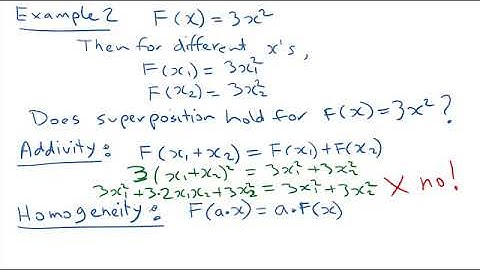 Example 2 F(x) = 3x²
Then for different x's,
F(x₁) = 3x₁²
F(x₂) = 3x₂²
Does superposition hold for F(x) = 3x²?
Addivity: F(x₁+x₂) = F(x₁)+F(x₂)
3(x₁+x₂)² = 3x₁²+3x₂²
3x₁²+3·2x₁x₂+3x₂² = 3x₁²+3x₂² X no!
Homogeneity: F(a·x) = a·F(x)